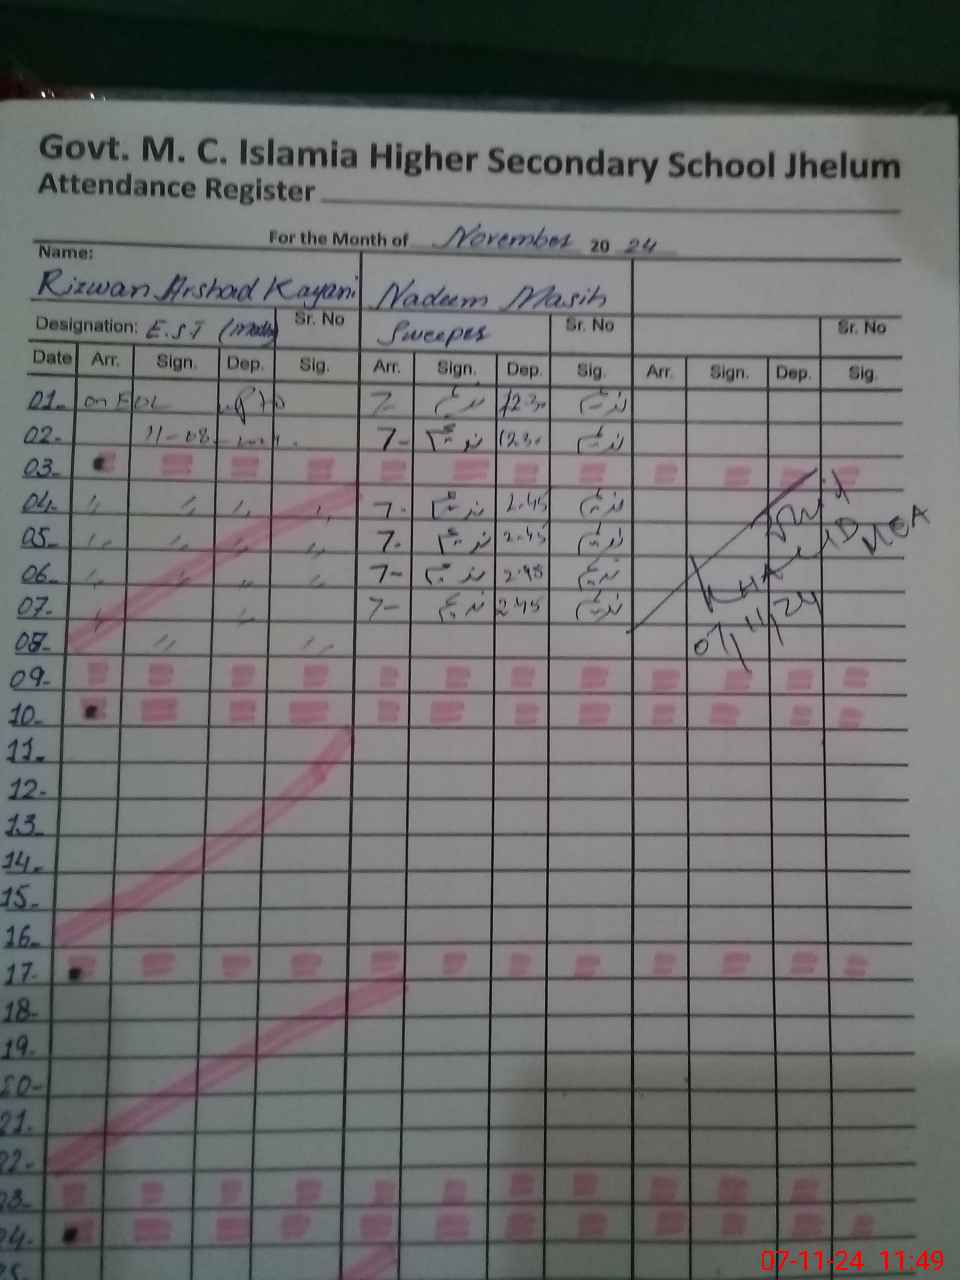 Govt. M. C. Islamia Higher Secondary School Jhelum
Attendance Register
For the Month of November 20 24
Name:
Rizwan Arshad Kayani Nadeem Masih
Designation: E.S.T Sr. No Sweeper Sr. No Sr. No
Date Arr. Sign. Dep. Sig. Arr. Sign. Dep. Sig. Arr. Sign. Dep. Sig.
01. on EOL 7- ندیم 12.30 ندیم
02. 11-08- 7- ندیم 12.30 ندیم
03.
04. 〃 〃 〃 〃 7- ندیم 2.45 ندیم
05. 〃 〃 〃 〃 7. ندیم 2.45 ندیم
06. 〃 〃 〃 〃 7- ندیم 2.45 ندیم
07. 〃 〃 7- ندیم 2.45 ندیم
08- 〃 〃
KHALID MEA
07/11/24
09-
10-
11.
12-
13.
14.
15.
16.
17.
18-
19.
20-
21.
22-
23.
24.
25.
07-11-24 11:49